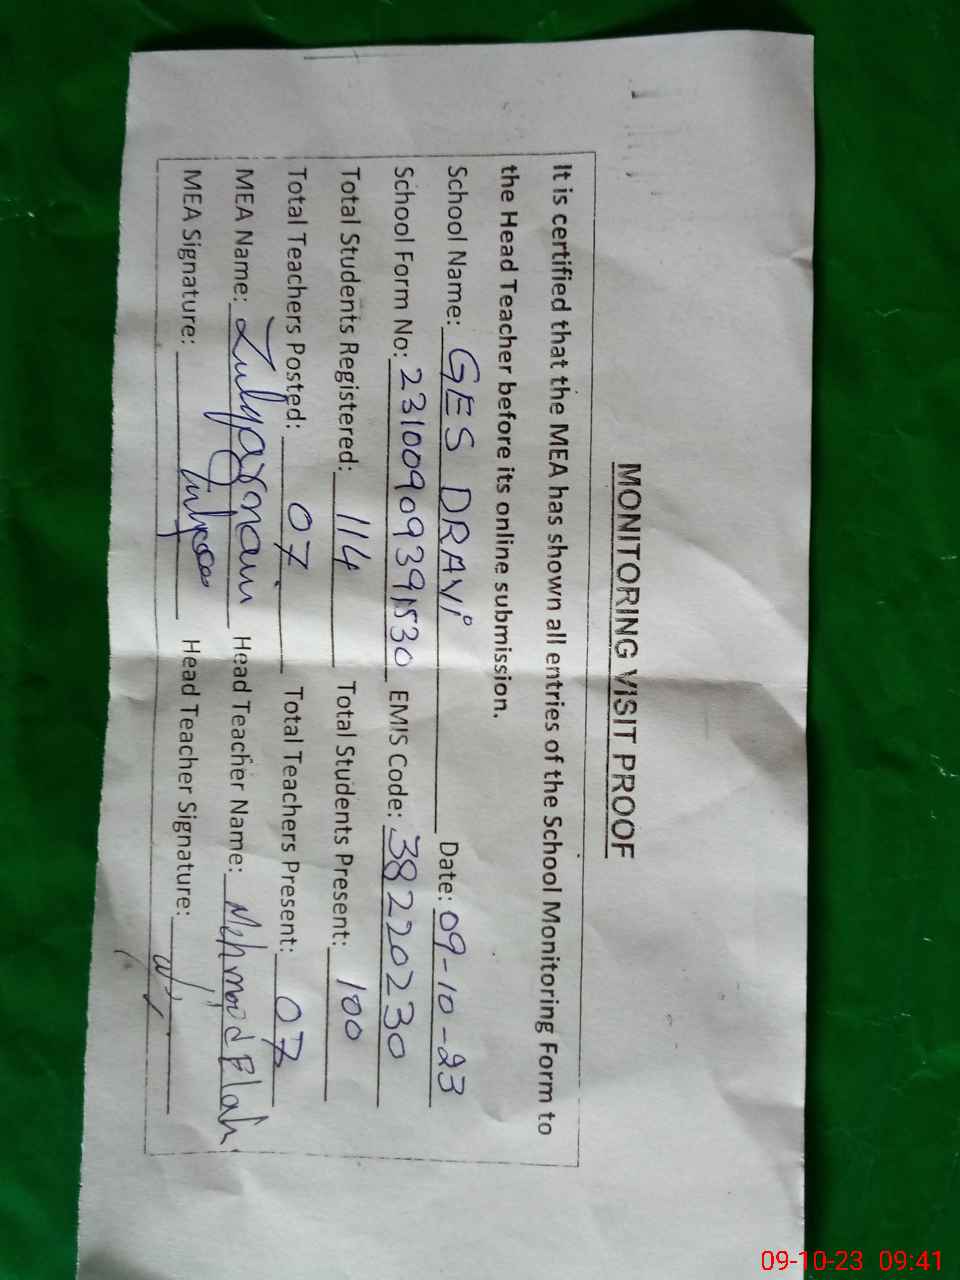 MONITORING VISIT PROOF
It is certified that the MEA has shown all entries of the School Monitoring Form to
the Head Teacher before its online submission.
School Name: GES DRAVi Date: 09-10-23
School Form No: 23100909391530 EMIS Code: 38220230
Total Students Registered: 114 Total Students Present: 100
Total Teachers Posted: 07 Total Teachers Present: 07
MEA Name: Zulqarnain Head Teacher Name: Mehmood Elahi
MEA Signature: Head Teacher Signature:
09-10-23 09:41